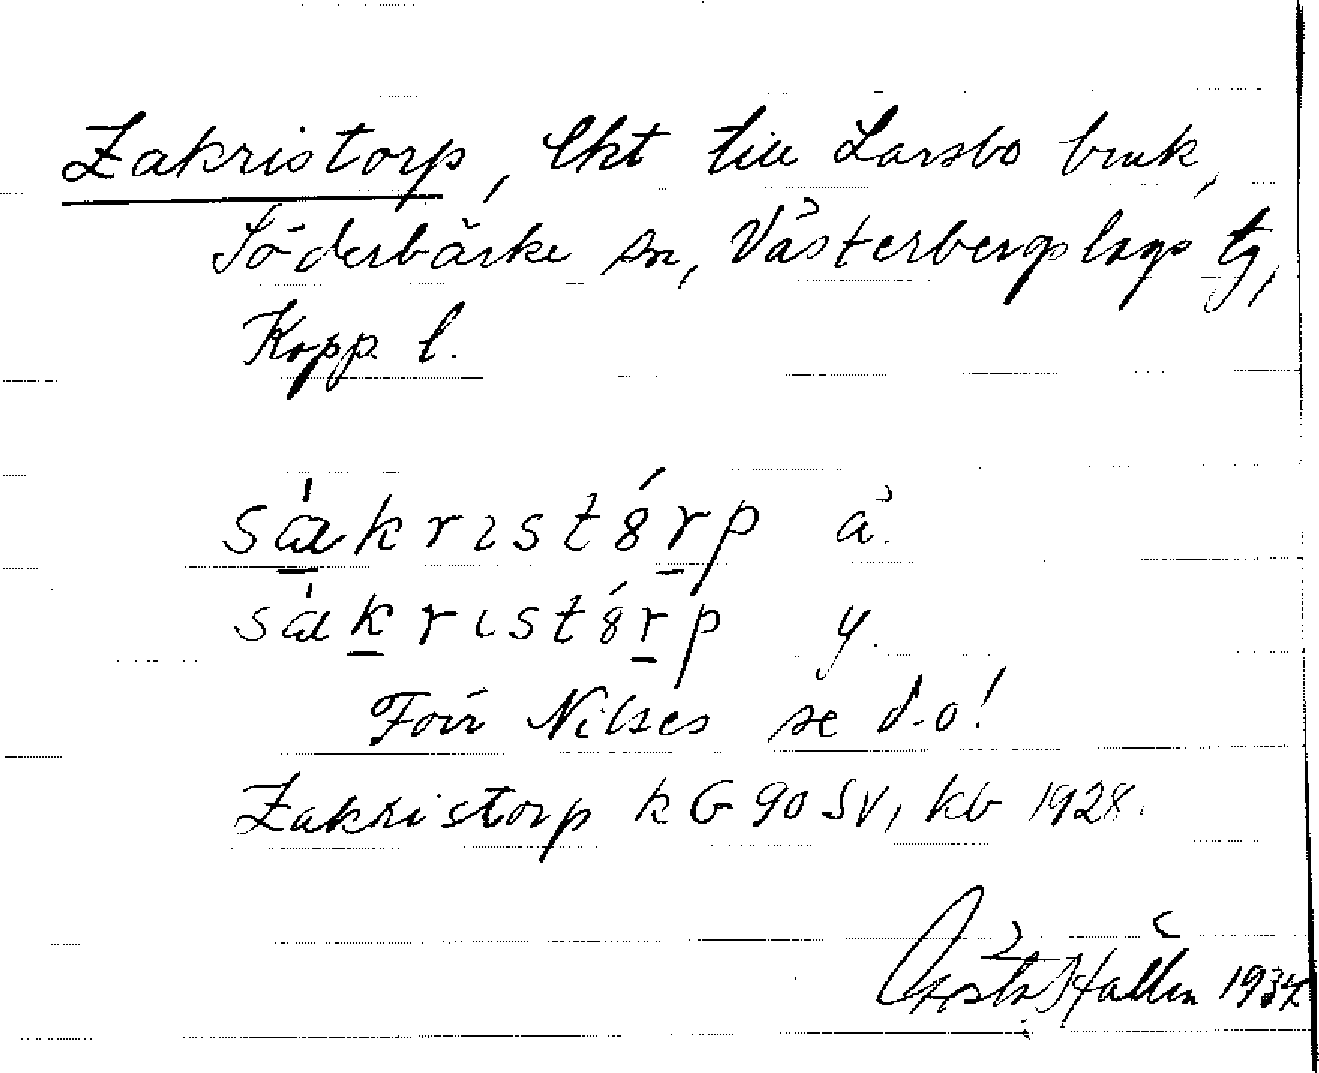 Zakristorp, lht till Larsbo bruk,
Söderbärke sn, Västerbergslags tg,
Kopp. l.
sákristórp ä.
sákristórp y.
Nilses se d.o!
Zakristorp k G 90 SV, kb 1928.
Gösta Hallén 1934